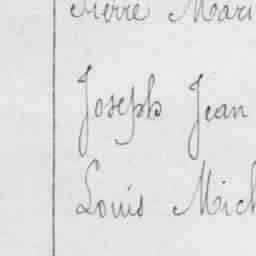 Pierre Mari
Joseph Jean
Louis Mich